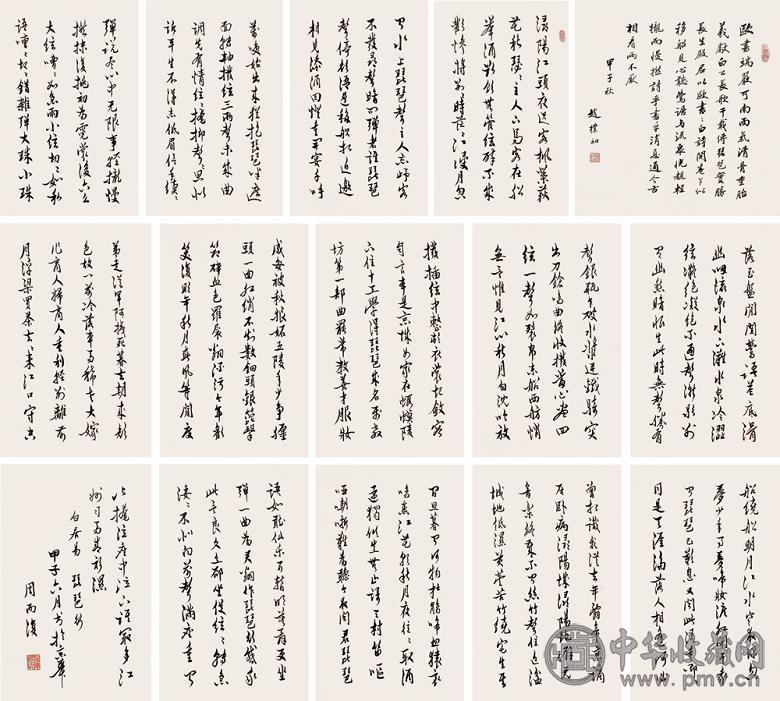 歐書端嚴可南氣清骨重胎
羲獻白公長歌千載傳琵琶實勝
長生殿君以歐書白詩開卷似
移船見心聽鶯語与流泉恍輕
攏而慢撚詩乎書乎消息通今古
相看兩不厭
甲子秋
趙樸初
潯陽江頭夜送客楓葉荻
花秋瑟瑟主人下馬客在船
舉酒欲飲無管絃醉不成
歡慘將別別時茫茫江浸月忽
聞水上琵琶聲主人忘歸客
不發尋聲暗問彈者誰琵琶
聲停欲語遲移船相近邀
相見添酒回燈重開宴千呼
萬喚始出來猶抱琵琶半遮
面轉軸撥絃三兩聲未成曲
調先有情絃絃掩抑聲聲思似
訴平生不得志低眉信手續續
彈說盡心中無限事輕攏慢
撚抹復挑初為霓裳後六幺
大絃嘈嘈如急雨小絃切切如私
語嘈嘈切切錯雜彈大珠小珠
落玉盤間關鶯語花底滑
幽咽流泉水下灘水泉冷澀
絃凝絕凝絕不通聲漸歇別
有幽愁暗恨生此時無聲勝有
聲銀瓶乍破水漿迸鐵騎突
出刀鎗鳴曲終收撥當心畫四
絃一聲如裂帛東船西舫悄
無言惟見江心秋月白沈吟放
撥插絃中整頓衣裳起斂容
自言本是京城女家在蝦蟆陵
下住十三學得琵琶成名屬教
坊第一部曲罷常教善才服妝
成每被秋娘妒五陵年少爭纏
頭一曲紅綃不知數鈿頭銀篦擊
節碎血色羅裙翻酒污今年歡
笑復明年秋月春風等閒度
弟走從軍阿姨死暮去朝來顏
色故門前冷落車馬稀老大嫁
作商人婦商人重利輕別離前
月浮梁買茶去去來江口守空
船繞船明月江水寒夜深忽
夢少年事夢啼妝淚紅闌干我
聞琵琶已歎息又聞此語重唧唧
同是天涯淪落人相逢何必
曾相識我從去年辭帝京謫
居臥病潯陽城潯陽地僻無
音樂終歲不聞絲竹聲住近湓
城地低濕黃蘆苦竹繞宅生其
間旦暮聞何物杜鵑啼血猿哀
鳴春江花朝秋月夜往往取酒
還獨傾豈無山歌與村笛嘔
啞嘲哳難為聽今夜聞君琵琶
語如聽仙樂耳暫明莫辭更坐
彈一曲為君翻作琵琶行感我
此言良久立卻坐促絃絃轉急
淒淒不似向前聲滿座重聞
皆掩泣座中泣下誰最多江
州司馬青衫濕
白居易 琵琶行
甲子六月書於京華
周而復
中华收藏网
www.pmv.cn